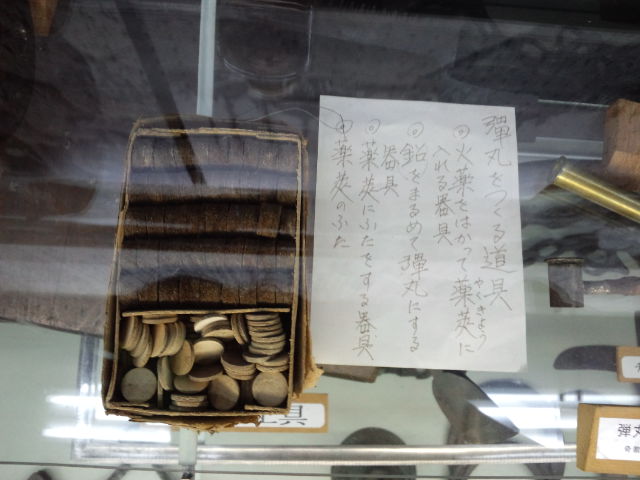 弾丸をつくる道具
◎火薬をはかって薬莢に
やくきよう
入れる器具
◎鉛をまるめて弾丸にする
器具
◎薬莢にふたをする器具
◎薬莢のふた
具
弾丸